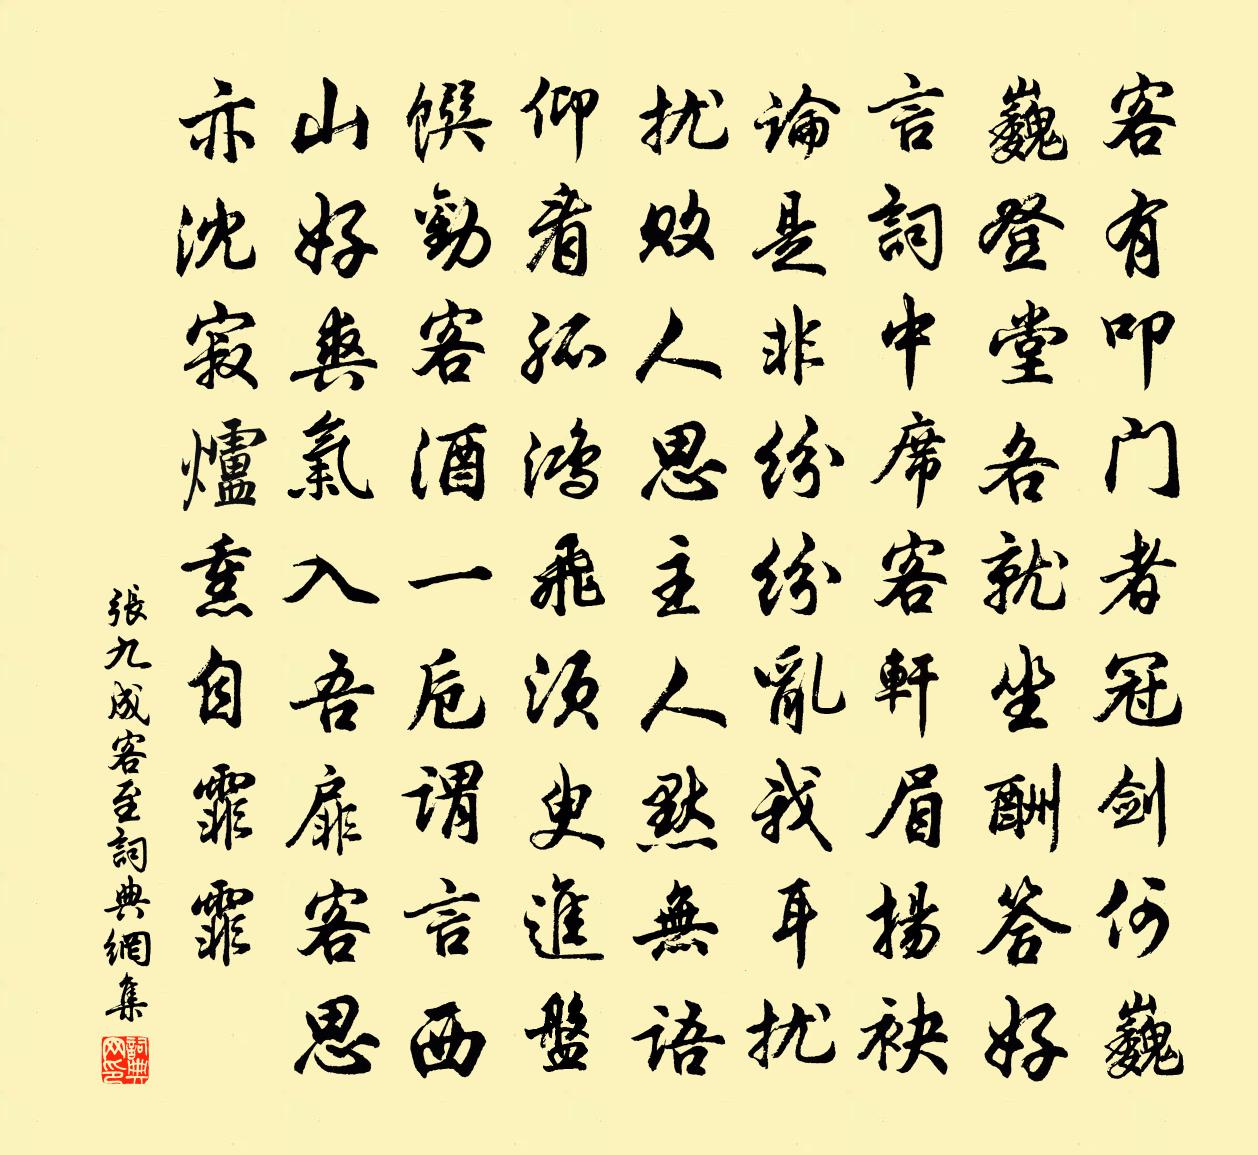 客有叩门者冠剑何巍
巍登堂各就坐酬答好
言詞中席客軒眉揚袂
論是非紛紛亂我耳扰
扰败人思主人默無語
仰看孤鸿飛須臾進盤
饌勸客酒一卮谓言西
山好爽氣入吾扉客思
亦沈寂爐熏自霏霏
張九成客至詞典網集
詞典网印